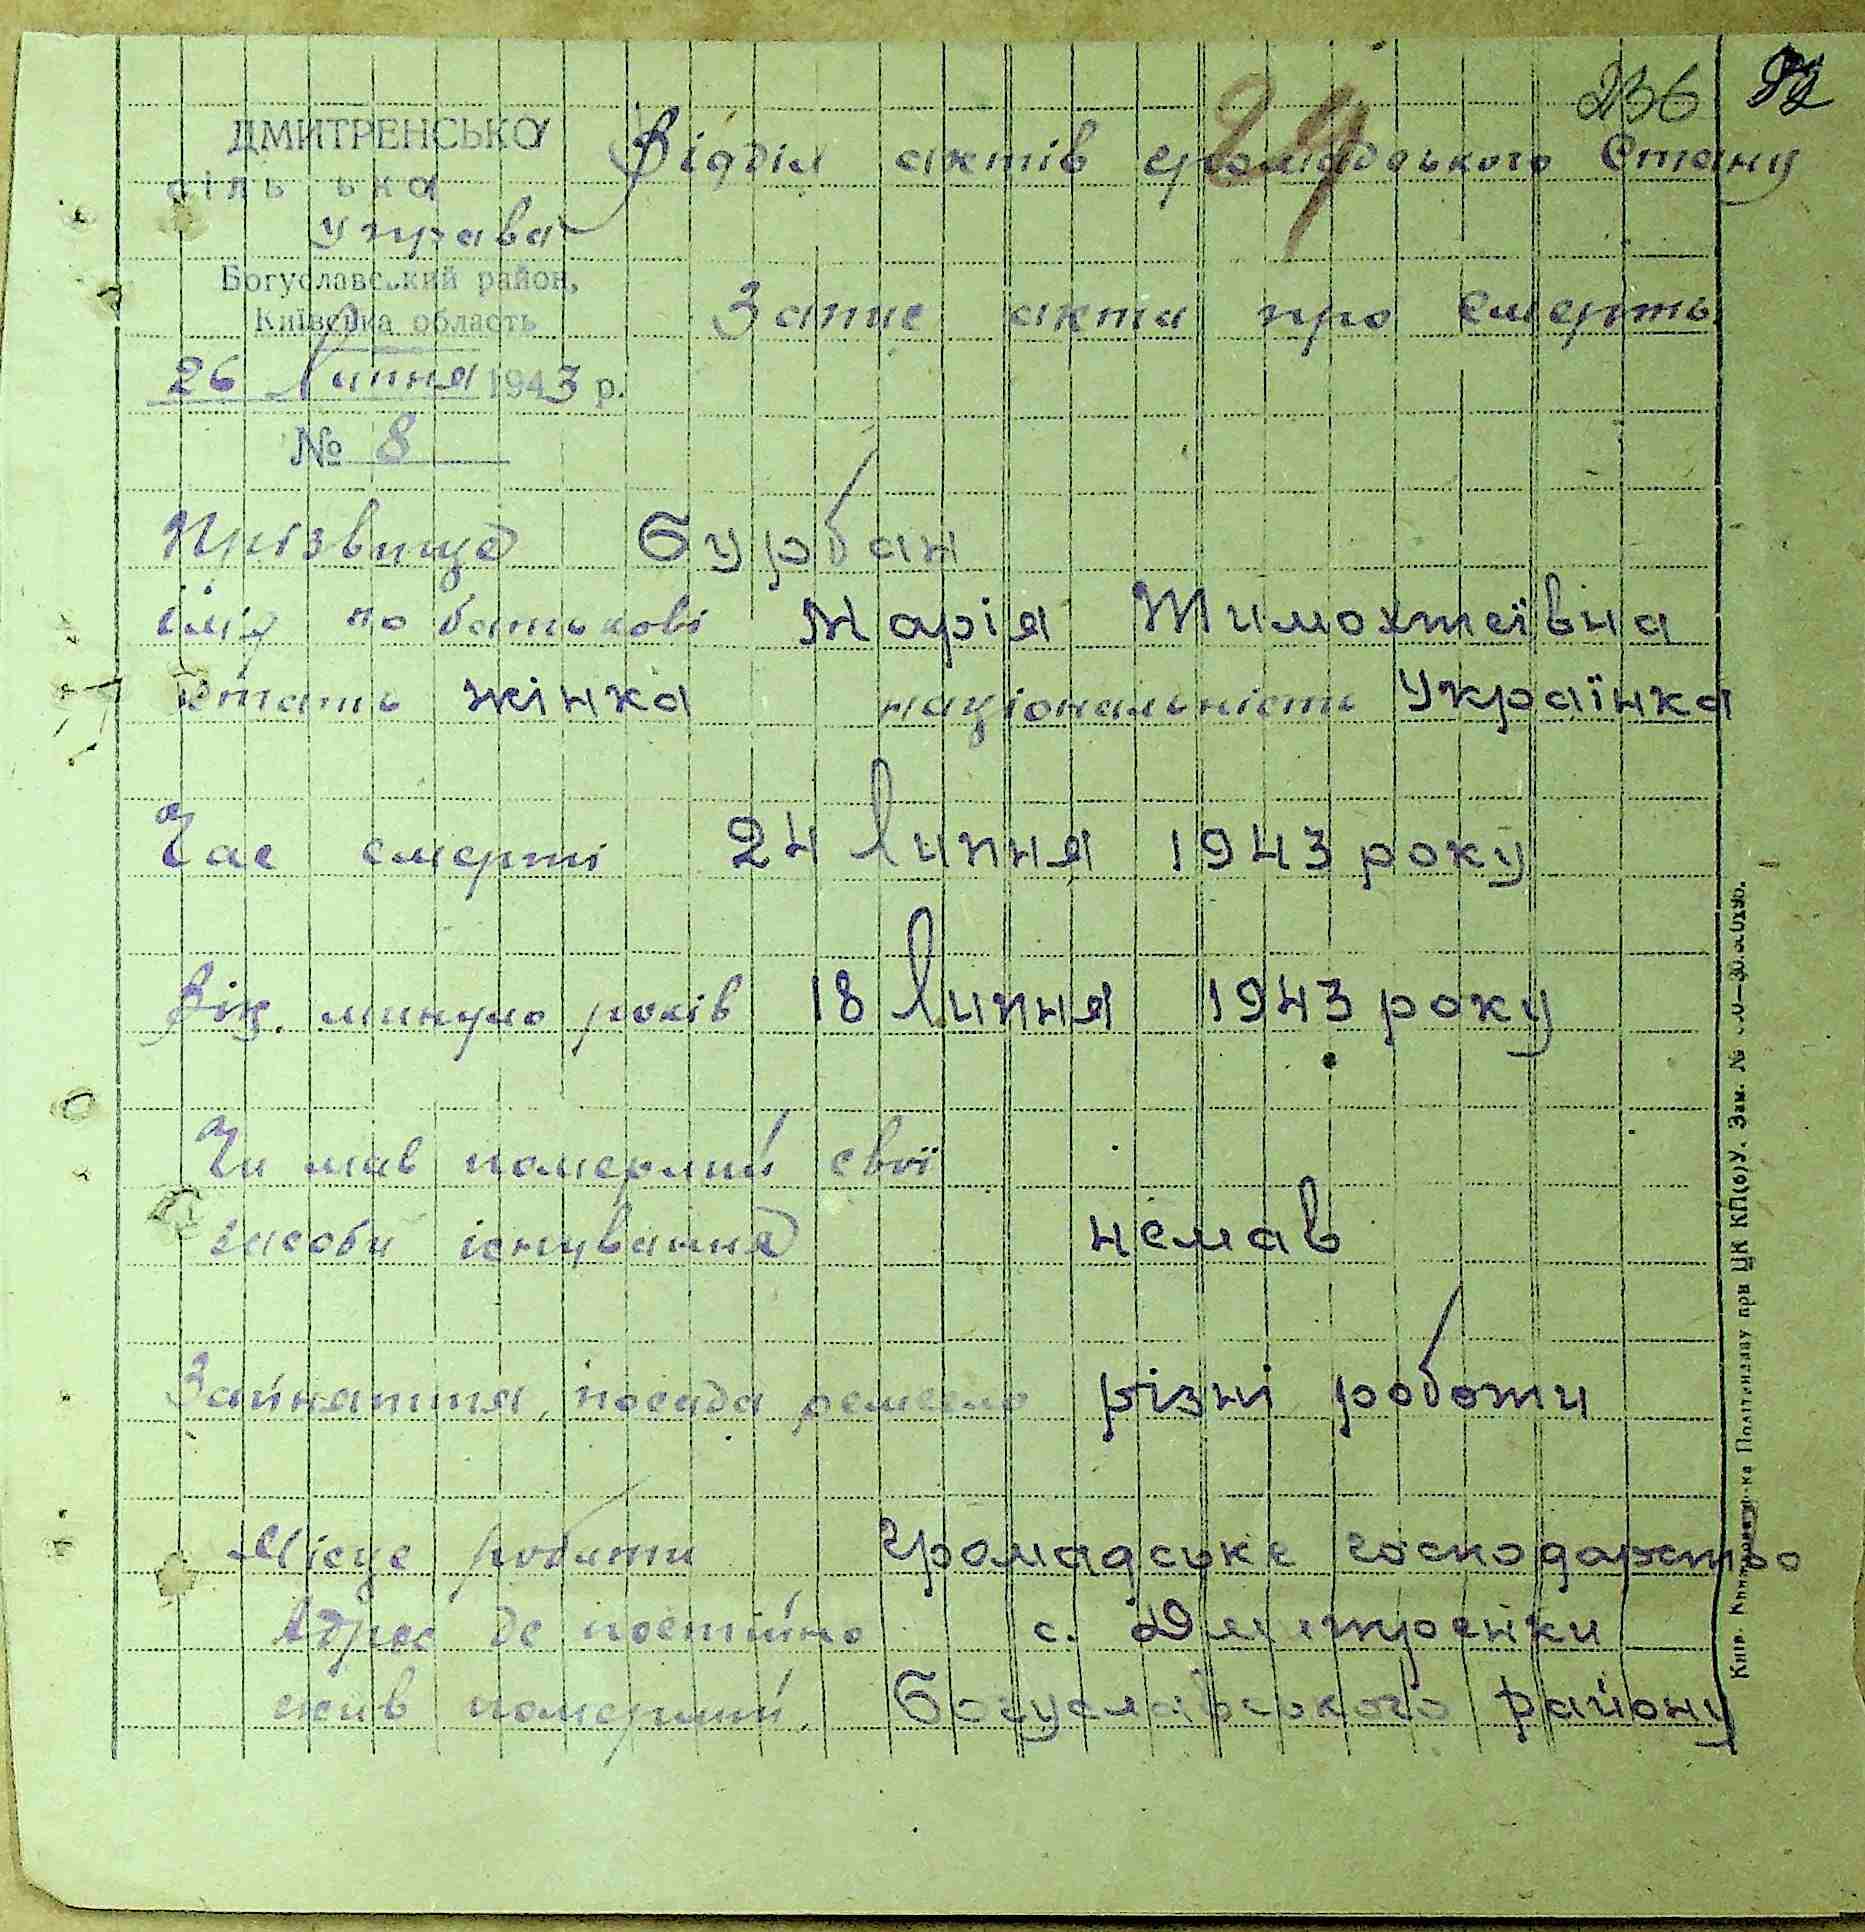 236
29
ДМИТРЕНСЬКА
Відділ актів громадського Стану
сіль ька
управа
Богуславський район,
Київська область
Запис акта про смерть
26 Липня 1943 р.
№ 8
Прізвище Бурбан
імія по батькові Марія Тимохтеївна
Стать жінка національність Українка
Час смерті 24 липня 1943 року
Вік. минуло років 18 липня 1943 року
Чи мав померлий свої
засоби існування немав
Зайняття, посада ремесло різні роботи
Місце роботи Громадське господарство
Адрес де постійно с. Дмитренки
жив померлий. Богуславського району
при ЦК КП(б)У. Зам. №